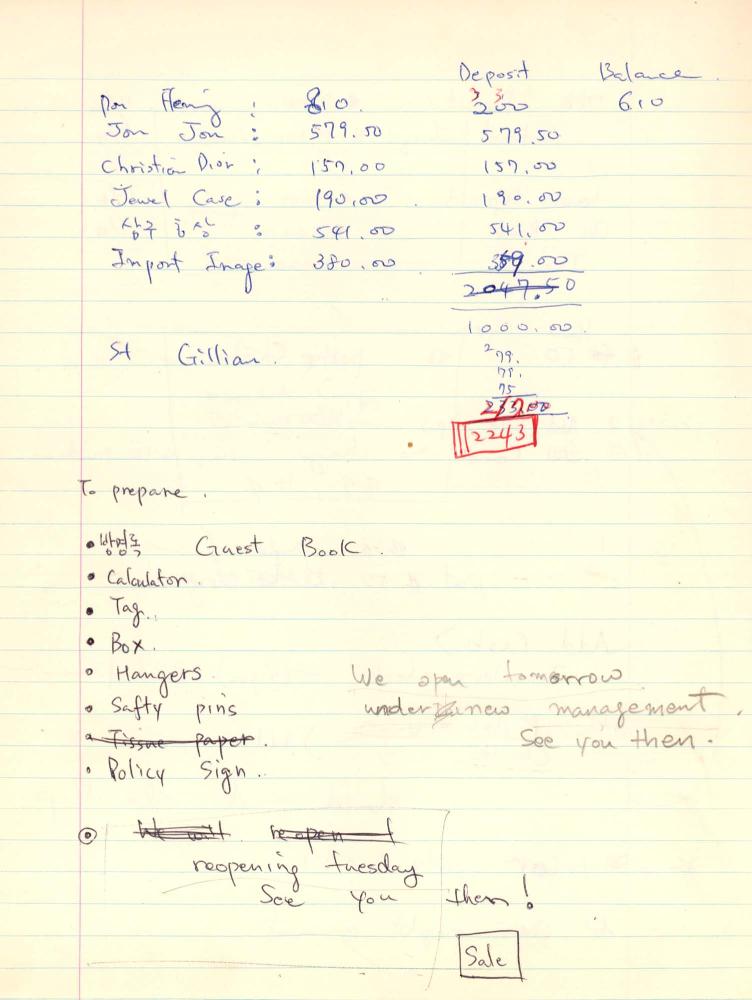 Deposit Balance.
Don Heming : 810. 200 610
3 3
Jon Jon : 579.50 579.50
Christian Dior : 157.00 157.00
Jewel Case : 190.00 190.00
: 541.00 541.00
Import Image : 380.00 .00
2047.50
1000.00.
St Gillian. 279.
79.
75
2243
To prepare.
• 방명록 Guest Book.
• Calculator.
• Tag.
• Box.
• Hangers
• Safty pins
• Tissue paper.
• Policy Sign.
We open tomorrow
under new management.
See you then.
We will reopen
reopening tuesday
See you then!
Sale